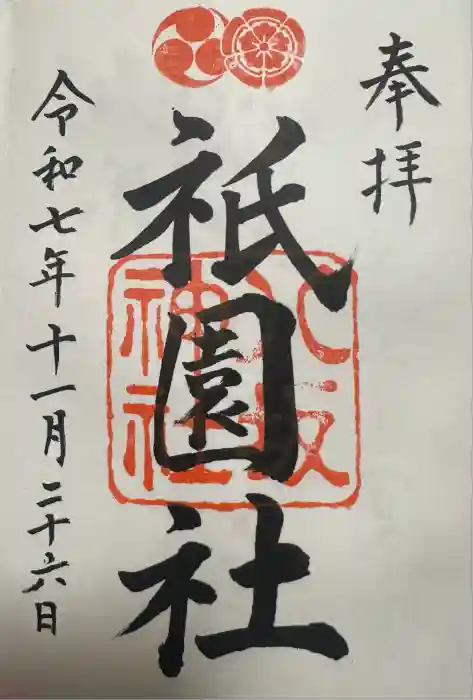 奉拝
祇園社
八坂
神社
令和七年十一月二十六日